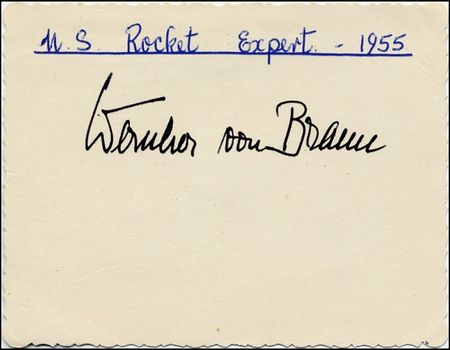 U.S Rocket Expert. - 1955
Wernher von Braun